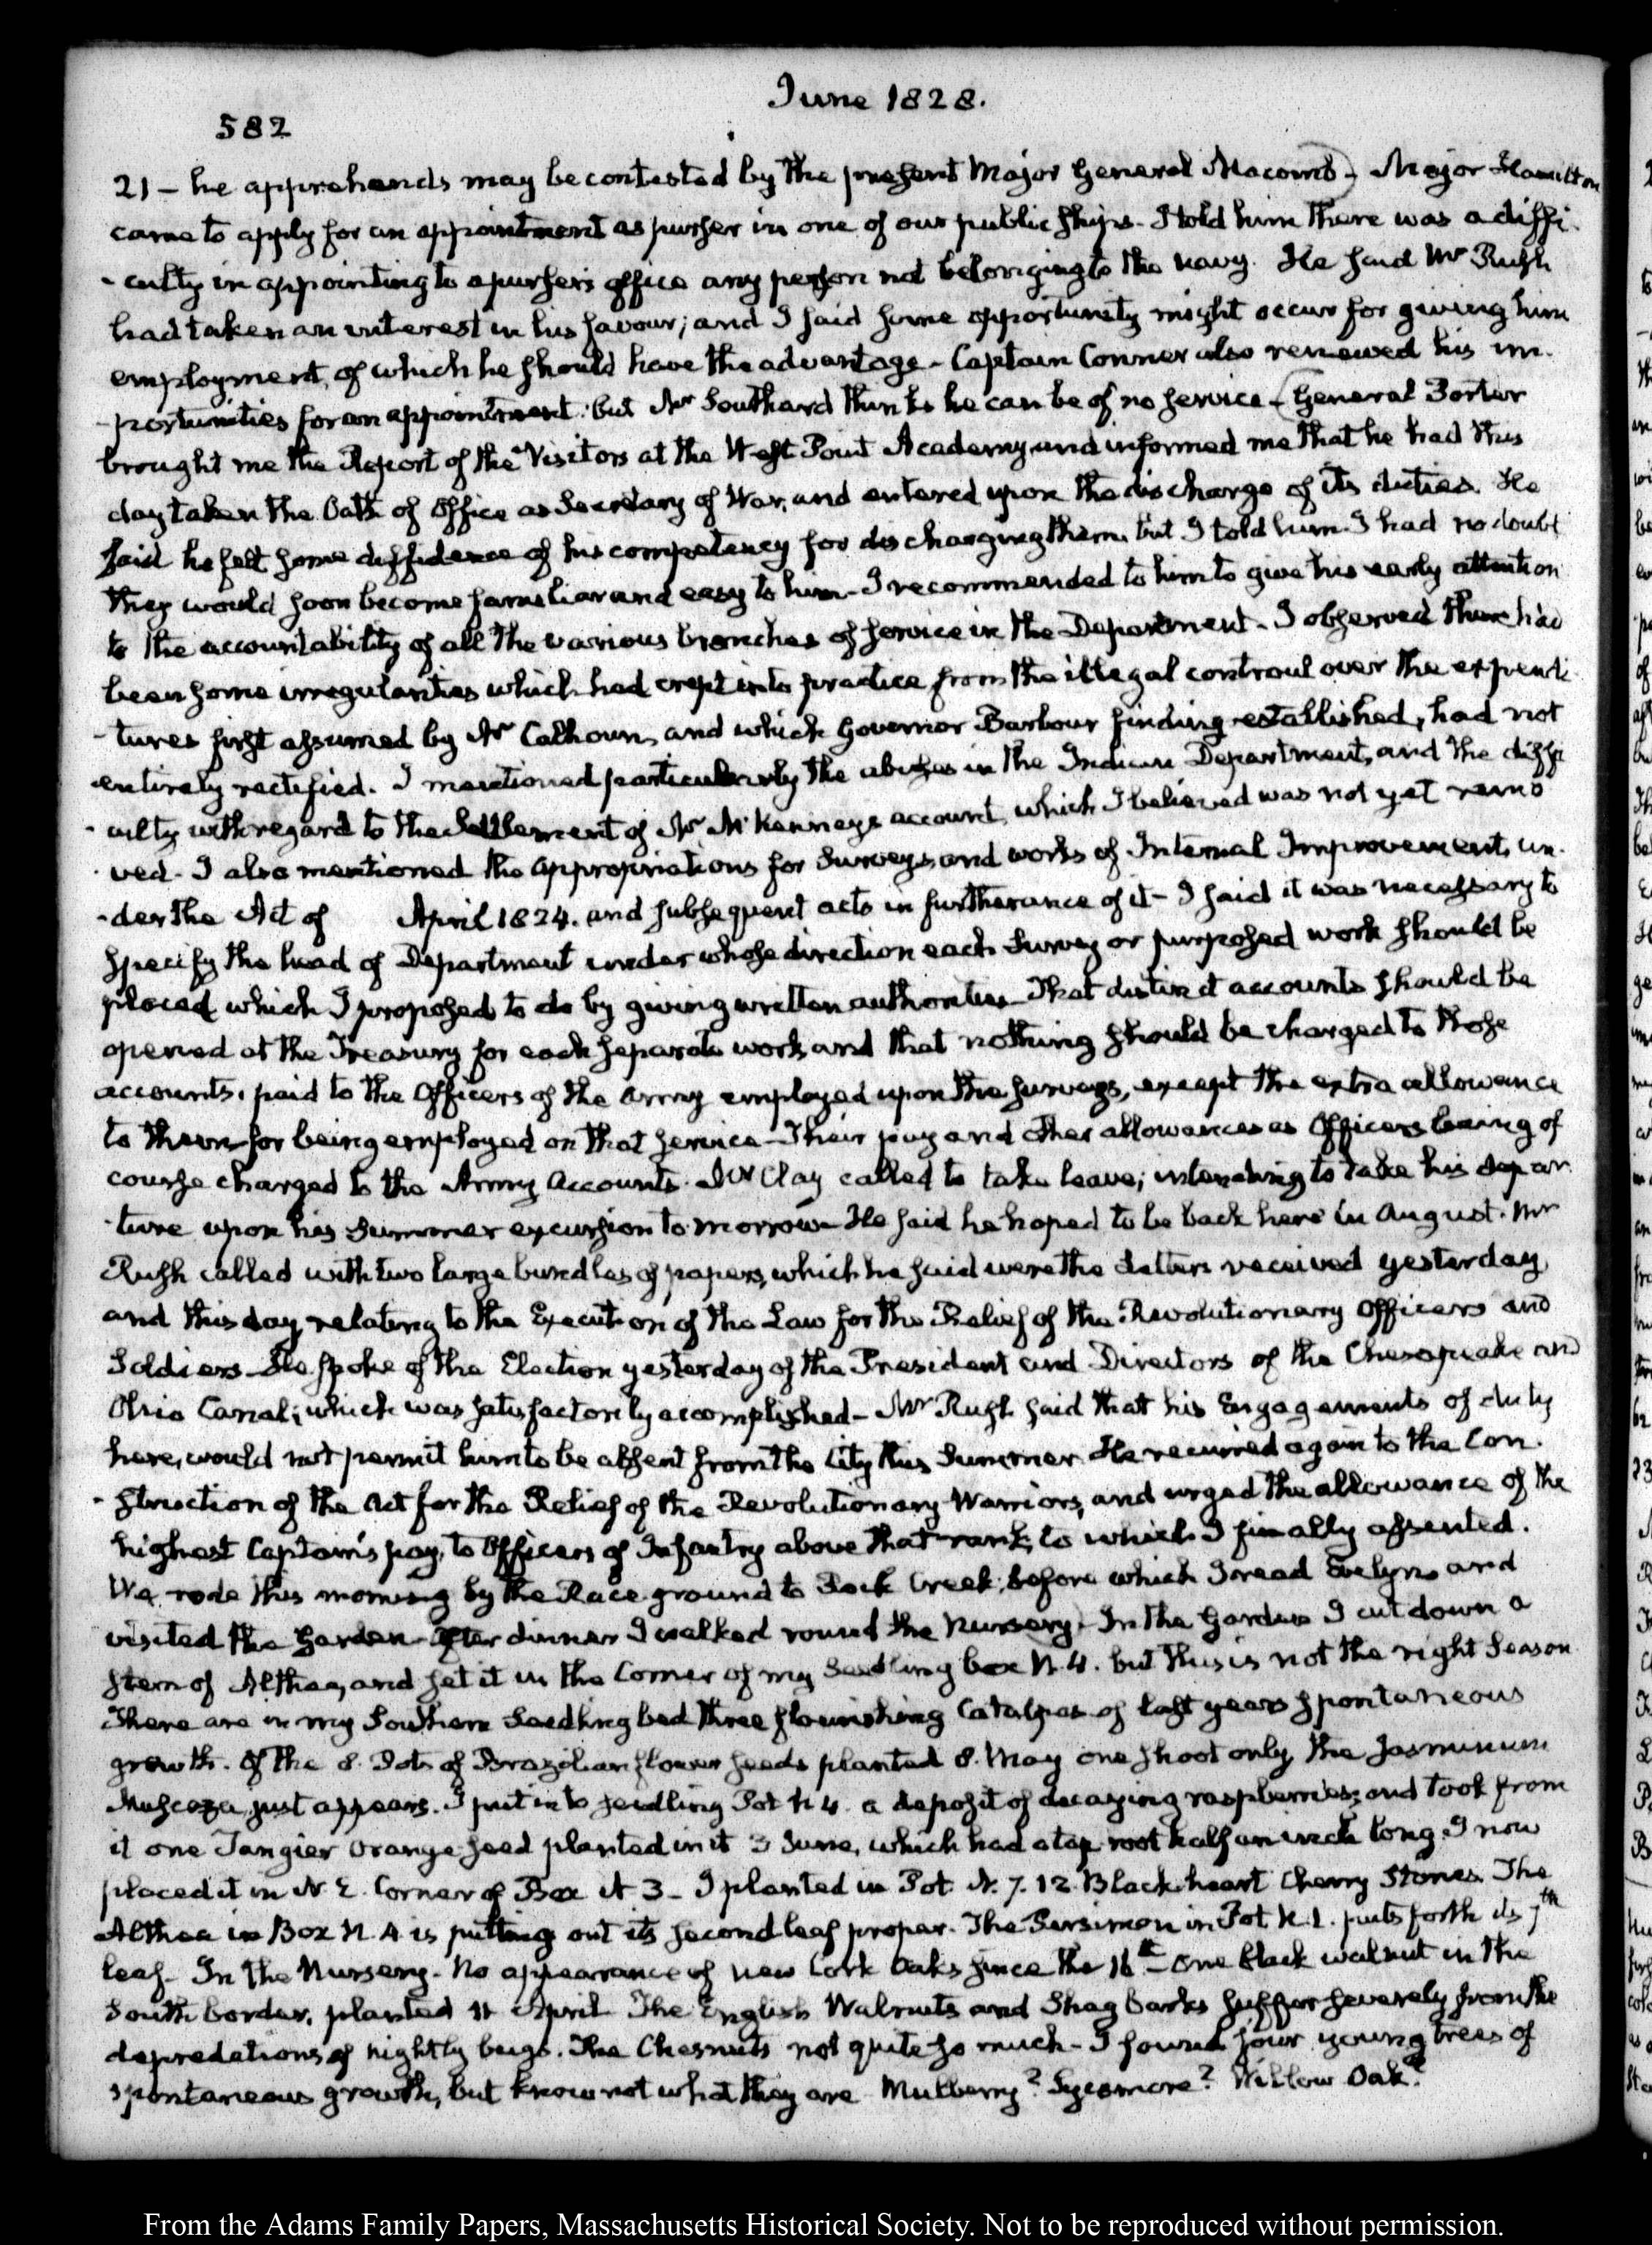 June 1828.
582
21 — he apprehends may be contested by the present Major General Macomb) - Major Hamilton
came to apply for an appointment as purser in one of our public ships - I told him there was a diffi-
-culty in appointing to a purser's office any person not belonging to the navy. He said Mr Rush
had taken an interest in his favour; and I said some opportunity might occur for giving him
employment, of which he should have the advantage - Captain Conner also renewed his im-
-portunities for an appointment: but Mr Southard thinks he can be of no service - (General Porter
brought me the Report of the Visitors at the West Point Academy, and informed me that he had this
day taken the Oath of Office as Secretary of War, and entered upon the discharge of its duties. He
said he felt some diffidence of his competency for discharging them, but I told him I had no doubt
they would soon become familiar and easy to him - I recommended to him to give his early attention
to the accountability of all the various branches of service in the Department - I observed there had
been some irregularities which had crept into practice from the illegal controul over the expendi-
-tures first assumed by Mr Calhoun, and which Governor Barbour finding established, had not
entirely rectified. I mentioned particularly the abuses in the Indian Department, and the diffi
-culty with regard to the Settlement of Mr McKenney's account, which I believed was not yet remo
-ved - I also mentioned the appropriations for Surveys, and works of Internal Improvement, un-
-der the Act of April 1824. and subsequent acts in furtherance of it - I said it was necessary to
specify the head of Department under whose direction each Survey or purposed work should be
placed which I proposed to do by giving written authorities - That distinct accounts should be
opened at the Treasury for each separate work, and that nothing should be charged to those
accounts, paid to the Officers of the army employed upon the surveys, except the extra allowance
to them for being employed on that service - Their pay and other allowances as Officers being of
course charged to the Army Accounts. Mr Clay called to take leave; intending to take his depar
-ture upon his Summer excursion to-morrow - He said he hoped to be back here in August. Mr
Rush called with two large bundles of papers, which he said were the Letters received yesterday,
and this day, relating to the Execution of the Law for the Relief of the Revolutionary Officers and
Soldiers - He spoke of the Election yesterday of the President and Directors of the Chesapeake and
Ohio Canal; which was satisfactorily accomplished - Mr Rush said that his Engagements of duty
here, would not permit him to be absent from the City this Summer. He recurred again to the Con-
-struction of the Act for the Relief of the Revolutionary Warriors, and urged the allowance of the
highest Captain's pay, to Officers of Infantry above that rank, to which I finally assented.
We rode this morning by the Race ground to Rock Creek; before which I read Evelyn and
visited the Garden - After dinner I walked round the Nursery - In the Garden I cut down a
stem of Althea, and set it in the Corner of my Seedling box N. 4. but this is not the right season
There are in my Southern Seedling bed three flourishing Catalpas of last year's spontaneous
growth. Of the 8. Pots of Brazilian flower seeds planted 8. May one shoot only, the Jasminum
just appears. I put into seedling Pot N 4. a deposit of decaying raspberries; and took from
it one Tangier Orange seed planted in it 3 June, which had a tap root half an inch long. I now
placed it in N. E. Corner of Box N 3 - I planted in Pot N. 7. 12 Black-heart Cherry Stones. The
Althea in Box N. 4. is putting out its second leaf proper. The Persimon in Pot N. 1. puts forth its 7th
leaf - In the Nursery - No appearance of new Cork Oaks since the 16th - One black walnut in the
South border, planted 11 April The English Walnuts and Shagbarks suffer severely from the
depredations of nightly bugs. The Chesnuts not quite so much - I found four young trees of
spontaneous growth, but know not what they are Mulberry? Sycamore? Willow Oak?
From the Adams Family Papers, Massachusetts Historical Society. Not to be reproduced without permission.